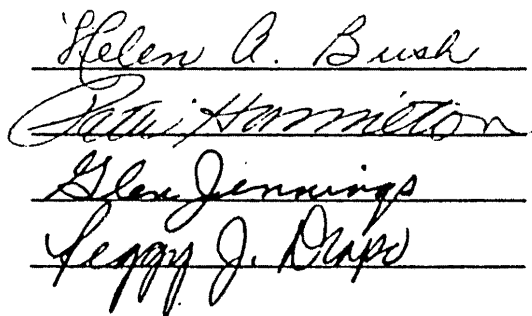 Helen A. Bush
Patti Hamilton
Glen Jennings
Peggy J.